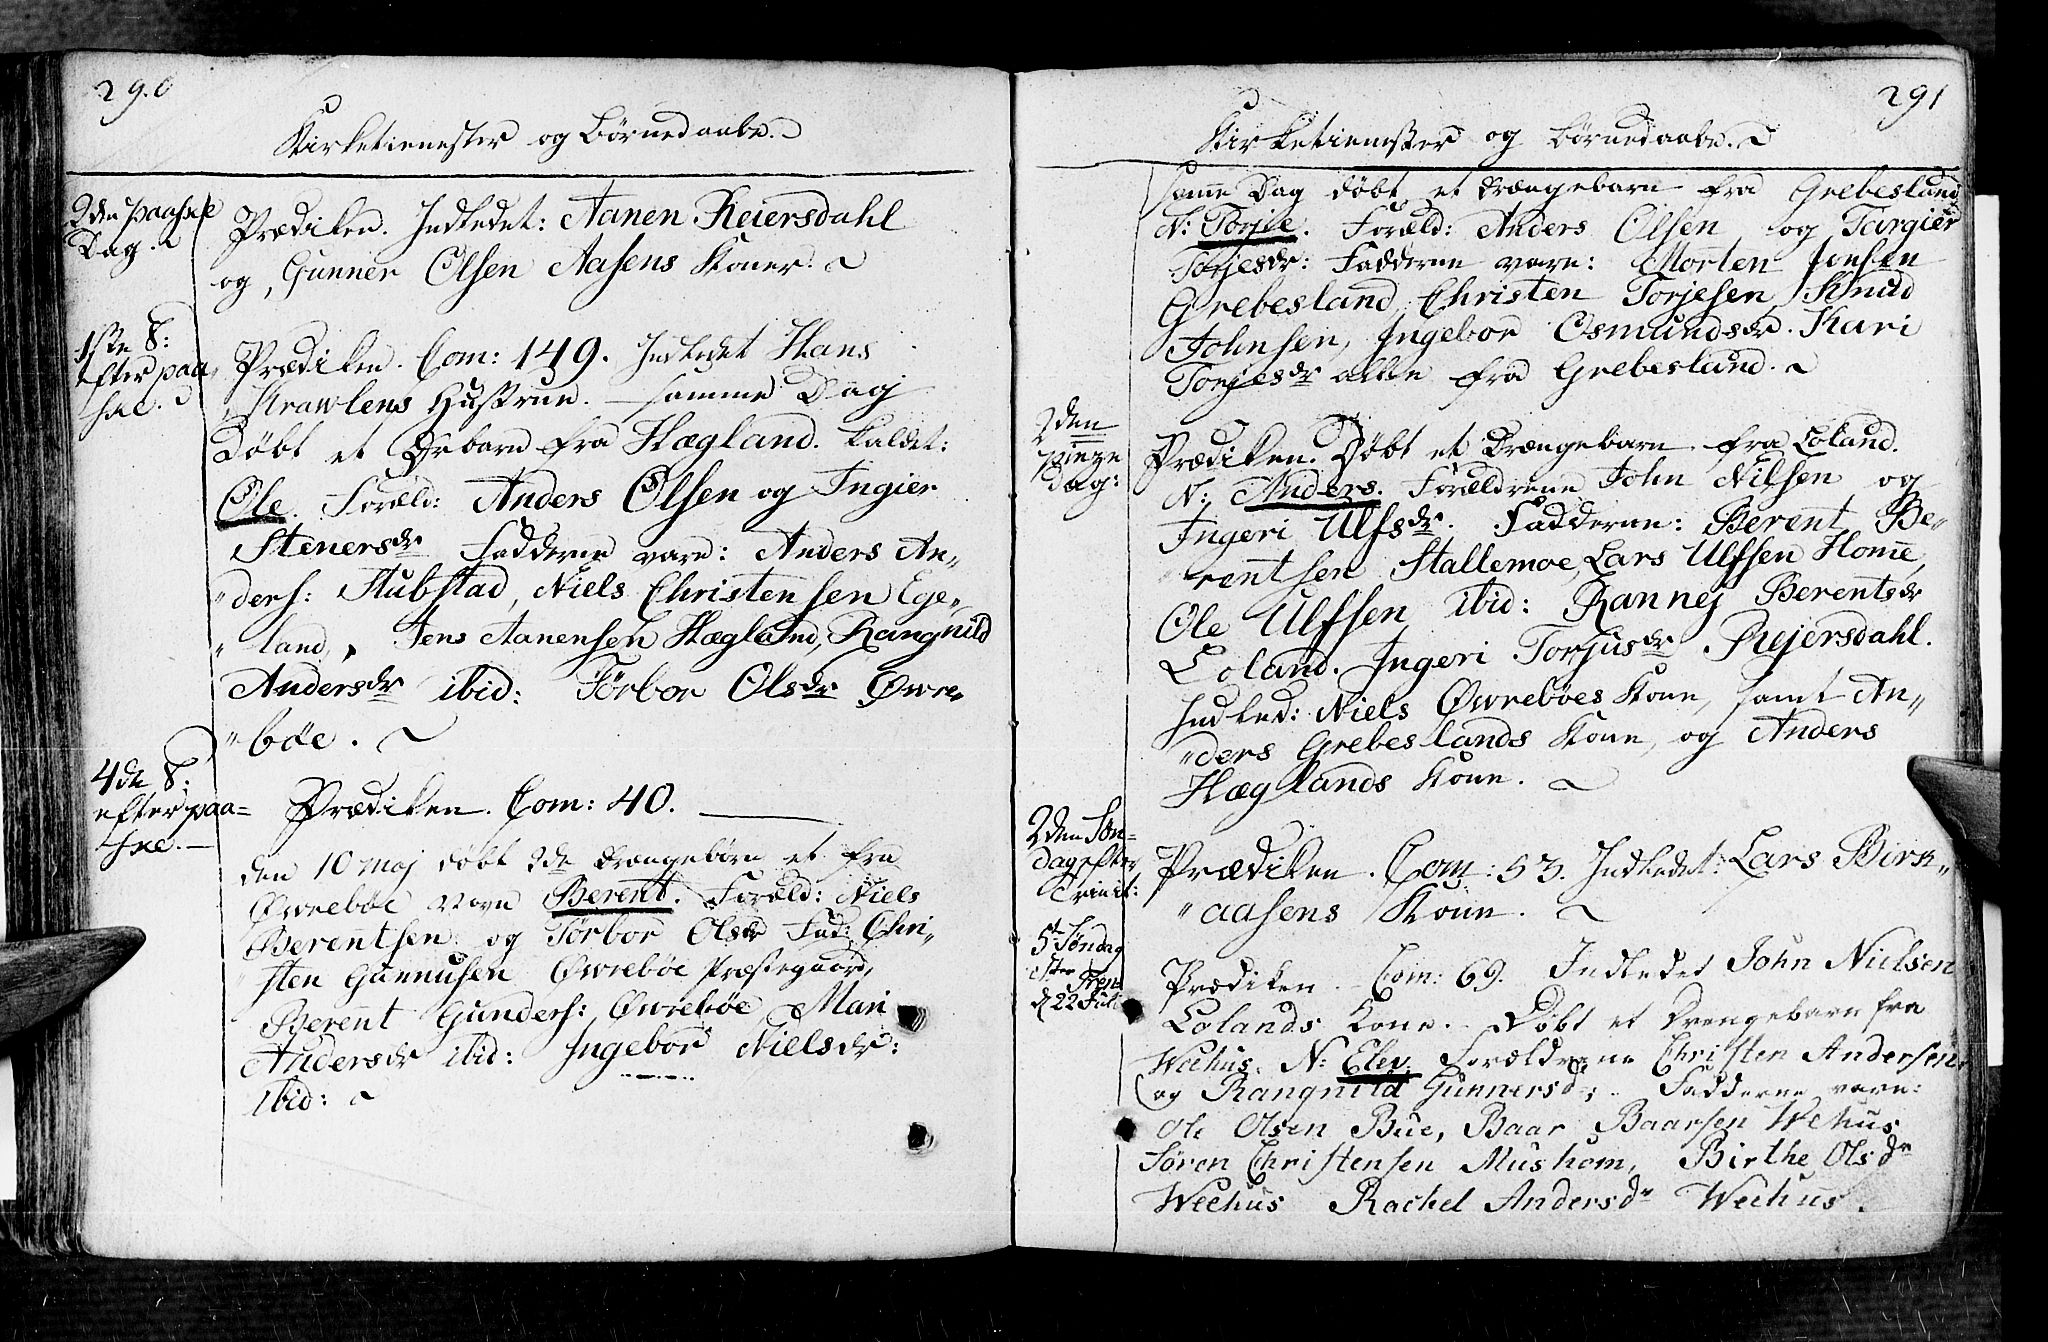 290
Kirketienester og Børnedaabe.
2den paaske
Dag.
Prædiken. Indledet: Aanen Reiersdahl
og, Gunner Olsen Aasens Koner.
1ste S:
efter paa
ske.
Prædiken. Com: 149. Indledet Hans
Hustrue. samme Dag
Døbt et Drbarn fra Hægland. kaldet:
Ole. Foræld: Anders Olsen og Ingier
Stenersdr Fadderne vare: Anders An„
„ders: Stubstad, Niels Christensen Ege„
„land, Jens Aanensen Hægland, Rangnild
Andersdr ibid: Törbor Olsdr Øwre„
„böe.
4de S:
efter paa=
ske.
Prædiken. Com: 40.
den 10 maj döbt 2de drængebörn et fra
Øwreböe navn Berent. Foræld: Niels
Berentsen og Törbor Olsdr Fad: Chri„
„sten Gunnusen Øwreböe Præstegaard,
Berent Gunders: Øwreböe, Mari
Andersdr ibid: Ingebor Nielsdr:
ibid:
291
Kirketienester og Börnedaabe.
samme Dag döbt et drængebarn fra Grebesland
N: Torjie. Foræld: Anders Olsen og Targier
Torjesdr: Fadderne vare: Morten Jensen
Grebesland, Christen Torjesen, Knud
Johnsen, Ingebor Osmundsdr. Kari
Torjesdr alle fra Grebesland.
2den
pinze
dag:
Prædiken. Döbt et Drængebarn fra Loland.
N: Anders. Forældrene John Nilsen og
Ingeri Ulfsdr. Fadderne: Berent Be„
„rentsen Stallemoe, Lars Ulfsen Home,
Ole Ulfsen ibid: Rannej Berentsdr
Loland. Ingeri Torjusdr Rejersdahl.
Indled: Niels Øwreböes Kone, samt An„
„ders Grebeslands Kone, og Anders
Hæglands Kone.
2den Søn=
dag efter
Trinit:
Prædiken. Com: 53. Indledet: Lars Birk„
„aasens Kone.
5te Söndag
efter
Tren
d 22 Juli
Prædiken. Com: 69. Indledet John Nielsen
Lolands Kone. Döbt et Drengebarn fra
Weehus. N: Elev. Forældrene Christen Andersen
og Rangnild Gunnersdr. Fadderne vare:
Ole Olsen Bue, Baar Baarsen Wehus
Sören Christensen Mushom, Birthe Olsdr
Weehus Rachel Andersdr Weehus.